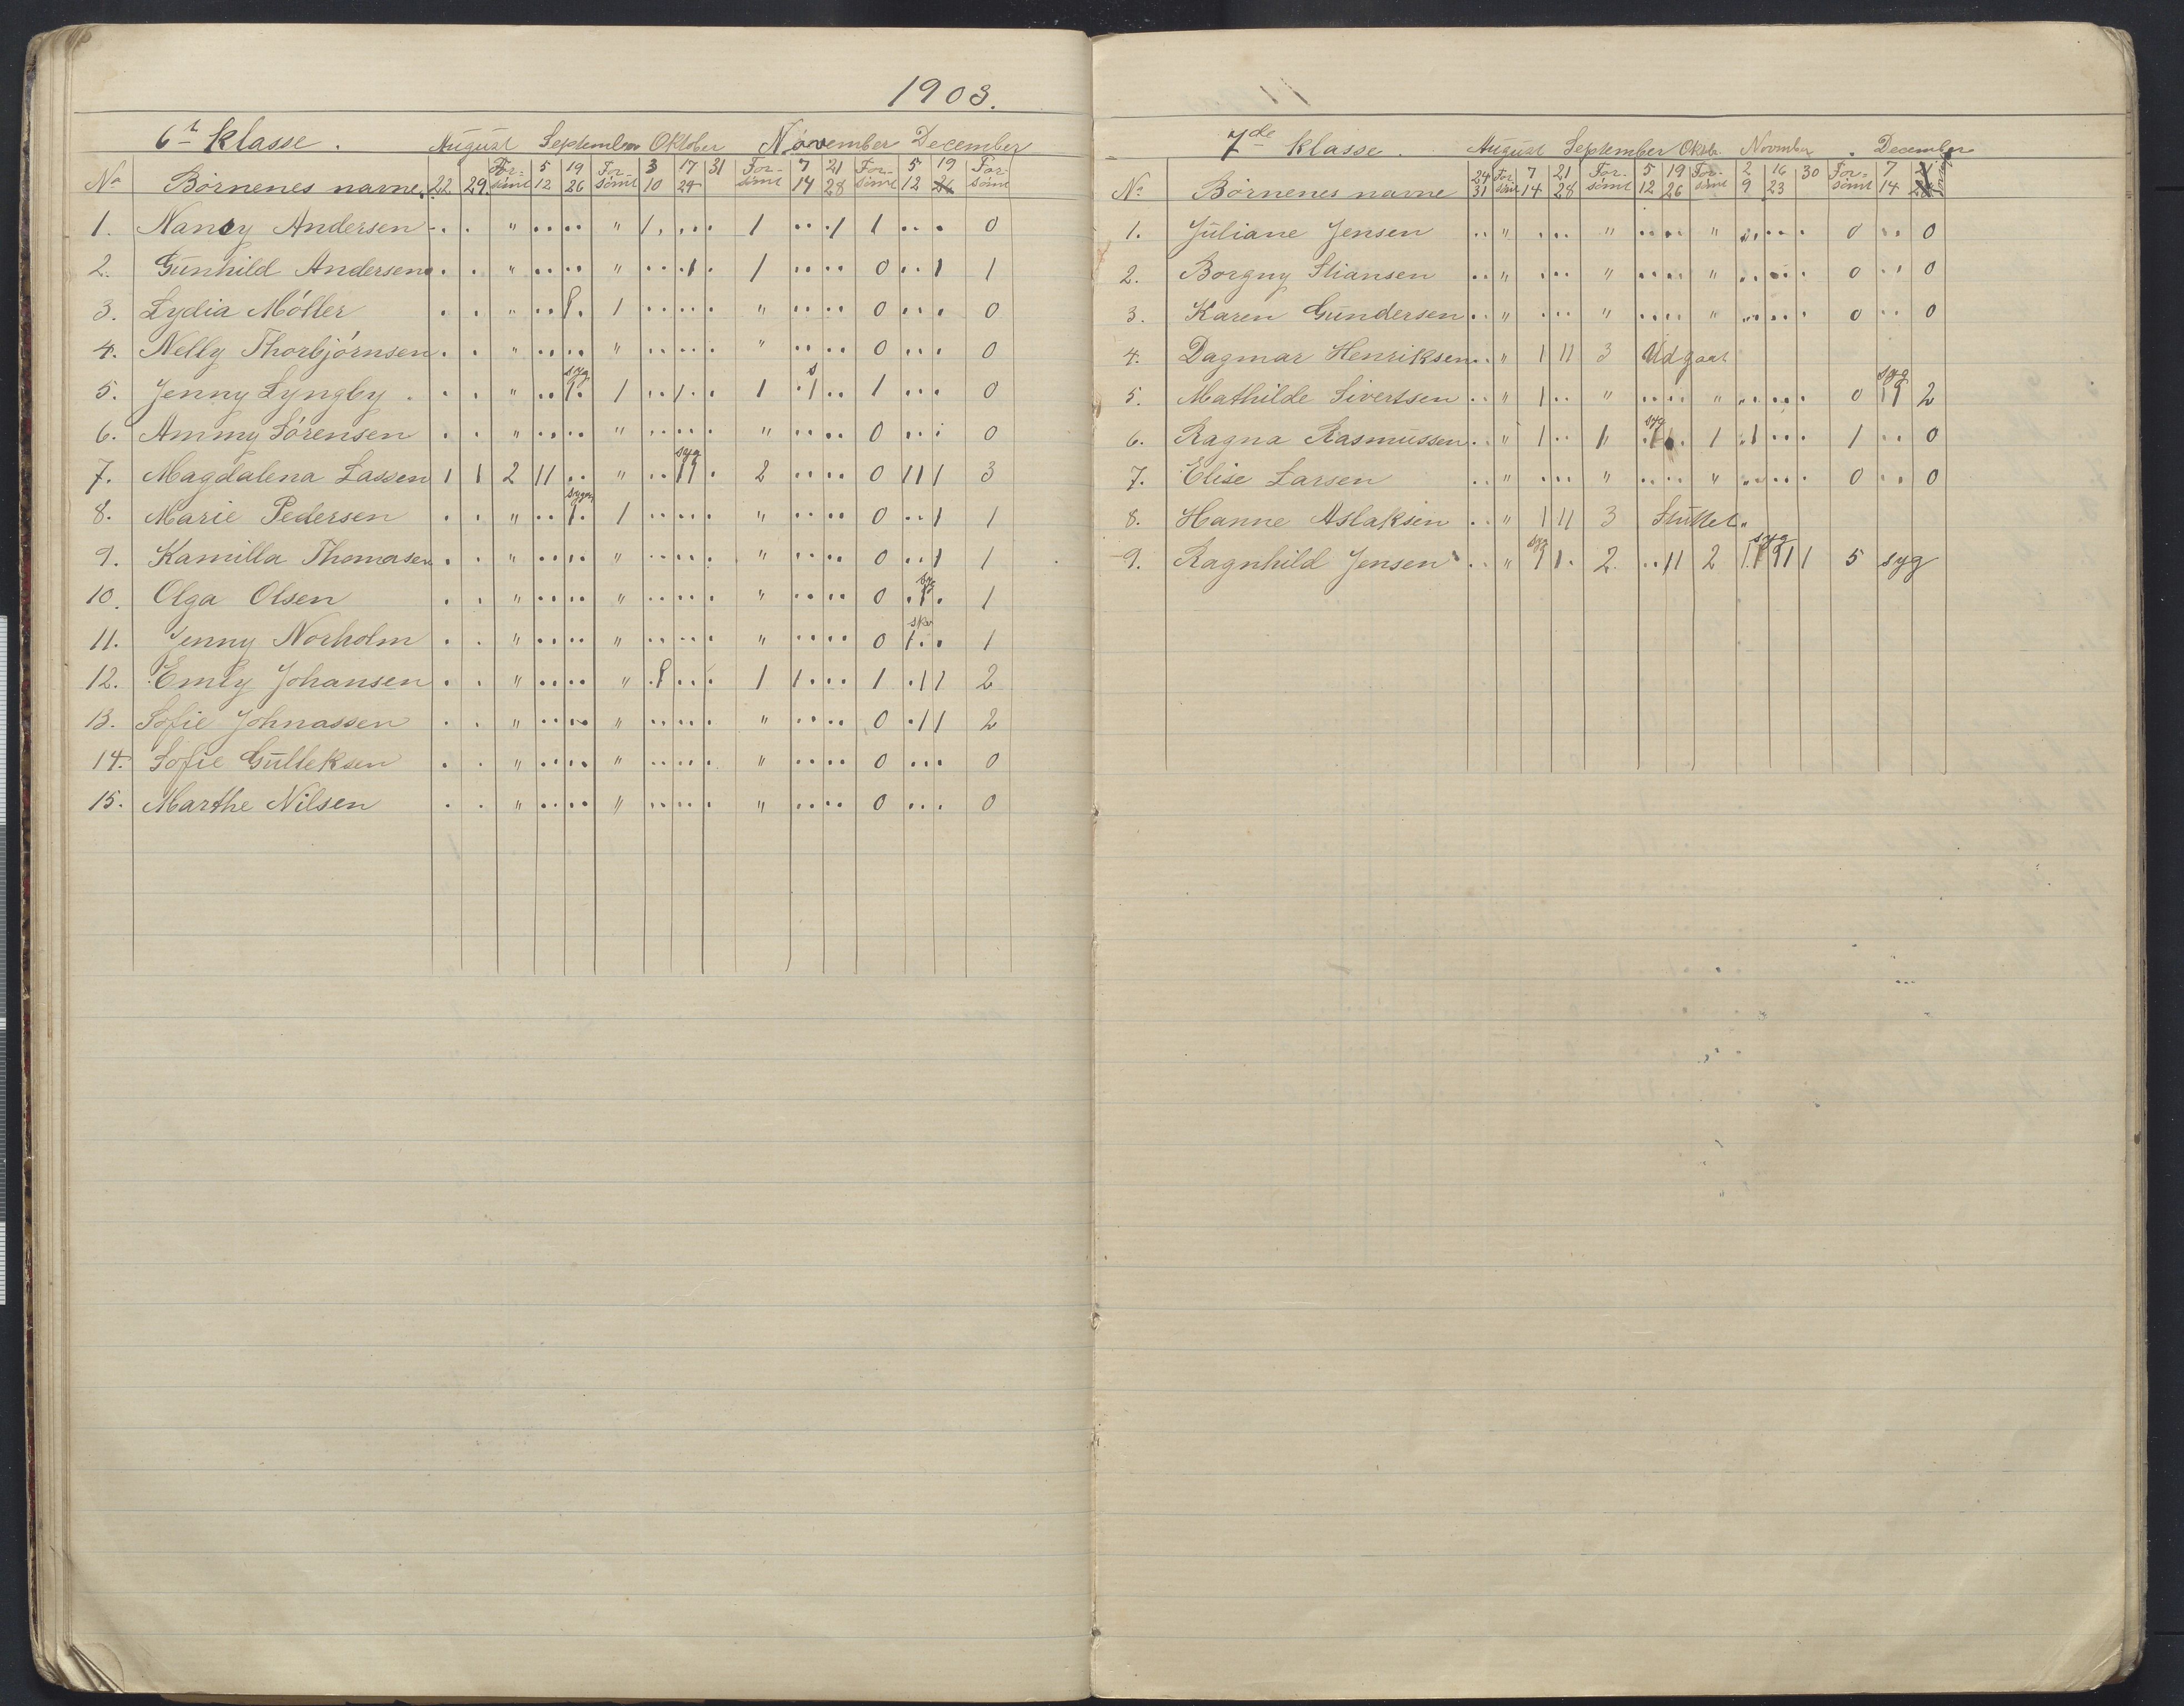 1903.
6te Klasse. August September Oktober November December
No Børnenes navne. 22 29. For-sømt 5 12 19 26 For-sømt 3 10 17 24 31 For-sømt 7 14 21 28 For-sømt 5 12 19 26 For-sømt
1. Nancy Andersen . . " .. .. " 1. .. . 1 .. .1 1 .. . 0
2. Gunhild Andersen . . " .. .. " .. .1 . 1 .. .. 0 .. 1 1
3. Lydia Møller . . " .. 1. 1 .. .. . " .. .. 0 .. . 0
4. Nelly Thorbjørnsen . . " .. .. " .. .. . " .. .. 0 .. . 0
5. Jenny Lyngby . . . " .. syg 1. 1 .. 1. . 1 s .1 .. 1 .. . 0
6. Ammy Sørensen . . " .. .. " .. .. . " .. .. 0 .. . 0
7. Magdalena Lassen 1 1 2 11 .. " .. syg 11 . 2 .. .. 0 11 1 3
8. Marie Pedersen . . " .. 1. 1 .. .. . " .. .. 0 .. 1 1
9. Kamilla Thomasen . . " .. .. " .. .. . " .. .. 0 .. 1 1
10. Olga Olsen . . " .. .. " .. .. . " .. .. 0 .1 . 1
11. Jenny Norholm . . " .. .. " .. .. . " .. .. 0 1. . 1
12. Emly Johansen . . " .. .. " .1 .. . 1 1. .. 1 .1 1 2
13. Sofie Johnassen . . " .. .. " .. .. . " .. .. 0 .1 1 2
14. Sofie Gulleksen . . " .. .. " .. .. . " .. .. 0 .. . 0
15. Marthe Nilsen . . " .. .. " .. .. . " .. .. 0 .. . 0
7de Klasse. August September Oktbr. November . December
No. Børnenes navne 24 31 For-sømt 7 14 21 28 For-sømt 5 12 19 26 For-sømt 2 9 16 23 30 For-sømt 7 14
1. Juliane Jensen .. " . .. " .. .. " .. .. . 0 .. 0
2. Borgny Stiansen .. " . .. " .. .. " .. .. . 0 .. 0
3. Karen Gundersen .. " . .. " .. .. " .. .. . 0 .. 0
4. Dagmar Henriksen .. " 1 11 3 Udgaat
5. Mathilde Sivertsen .. " 1 .. " .. .. " .. .. . 0 syg 11 2
6. Ragna Rasmussen .. " 1 .. 1 syg .1 .. 1 .1 .. . 1 .. 0
7. Elise Larsen .. " . .. " .. .. " .. .. . 0 .. 0
8. Hanne Aslaksen .. " 1 11 3 Sluttet.
9. Ragnhild Jensen .. " syg 1 1. 2. .. 11 2 11 syg 11 1 5 syg